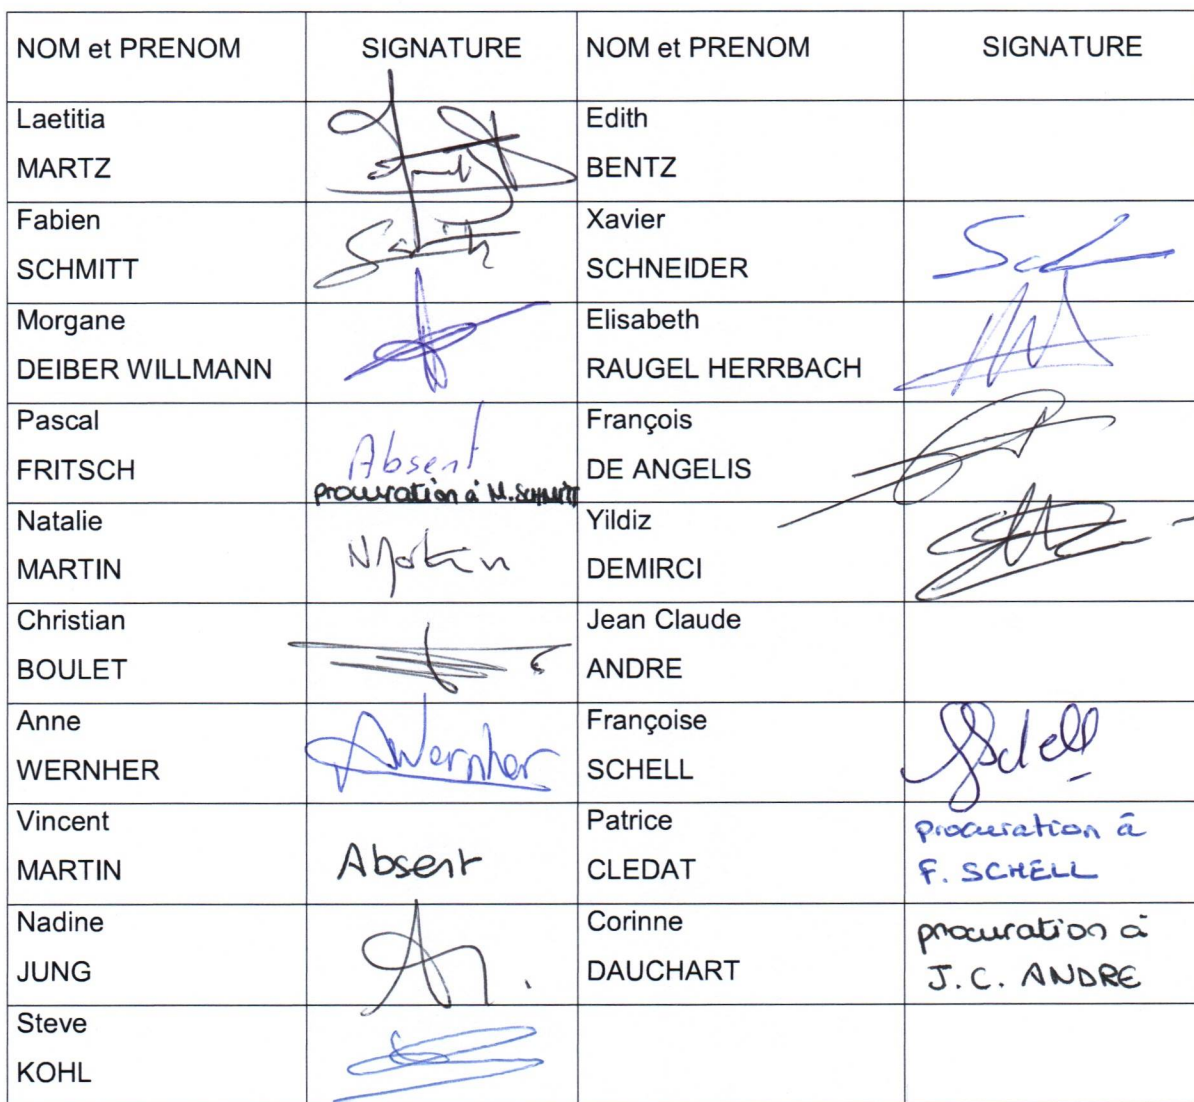 NOM et PRENOM SIGNATURE NOM et PRENOM SIGNATURE
Laetitia
MARTZ
Edith
BENTZ
Fabien
SCHMITT
Xavier
SCHNEIDER
Morgane
DEIBER WILLMANN
Elisabeth
RAUGEL HERRBACH
Pascal
FRITSCH
Absent
procuration à M. SCHMITT
François
DE ANGELIS
Natalie
MARTIN
Yildiz
DEMIRCI
Christian
BOULET
Jean Claude
ANDRE
Anne
WERNHER
AWernher
Françoise
SCHELL
Schell
Vincent
MARTIN
Absent
Patrice
CLEDAT
procuration à
F. SCHELL
Nadine
JUNG
Corinne
DAUCHART
procuration à
J.C. ANDRE
Steve
KOHL